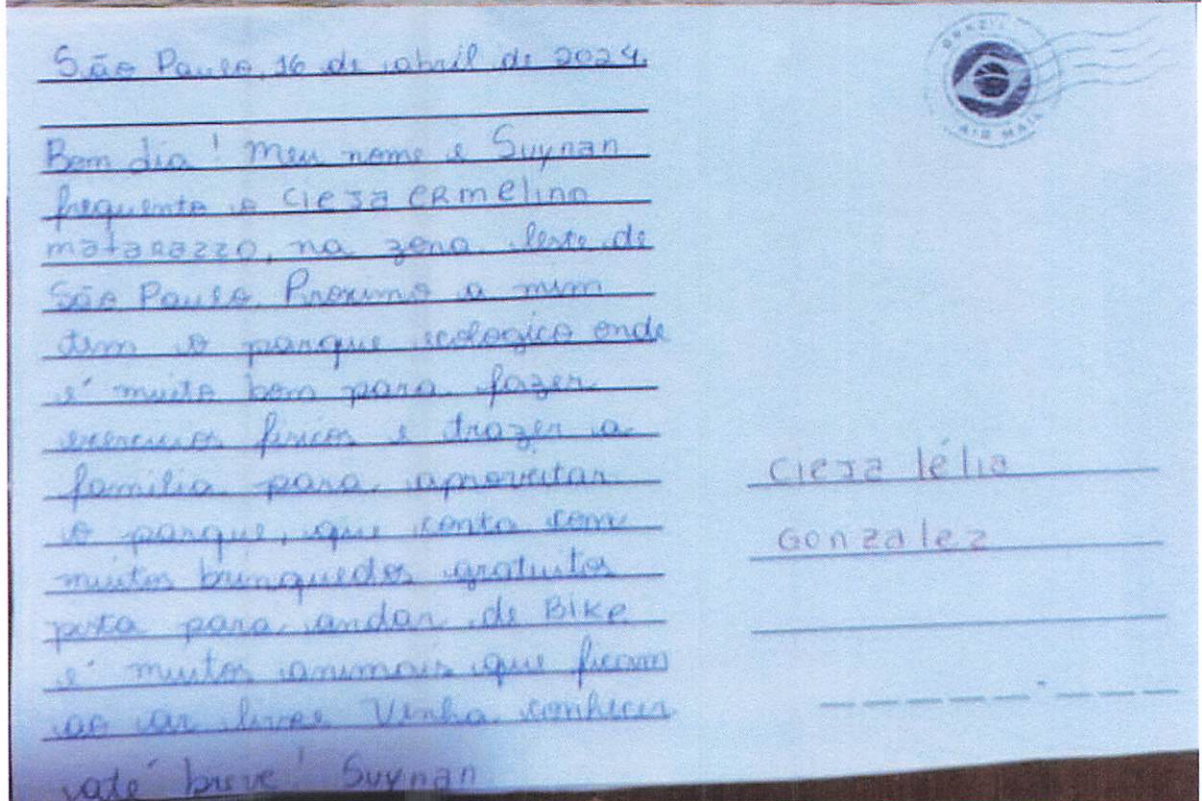 São Paulo, 16 de abril de 2024.
BRAZIL
AIR MAIL
Bom dia! Meu nome e Suynan
frequento o CIEJA ERMElinO
matarazzo, na zona leste de
São Paulo. Proximo a mim
tem o parque ecologico onde
é muito bom para fazer
exercicios fisicos e trazer a
familia para aproveitar
o parque, que conta com
muitos brinquedos gratuitos
pista para andar de BIKe
é muitos animais que ficam
ao ar livre Venha conhecer
até breve! Suynan
CIEJA lélia
Gonzalez